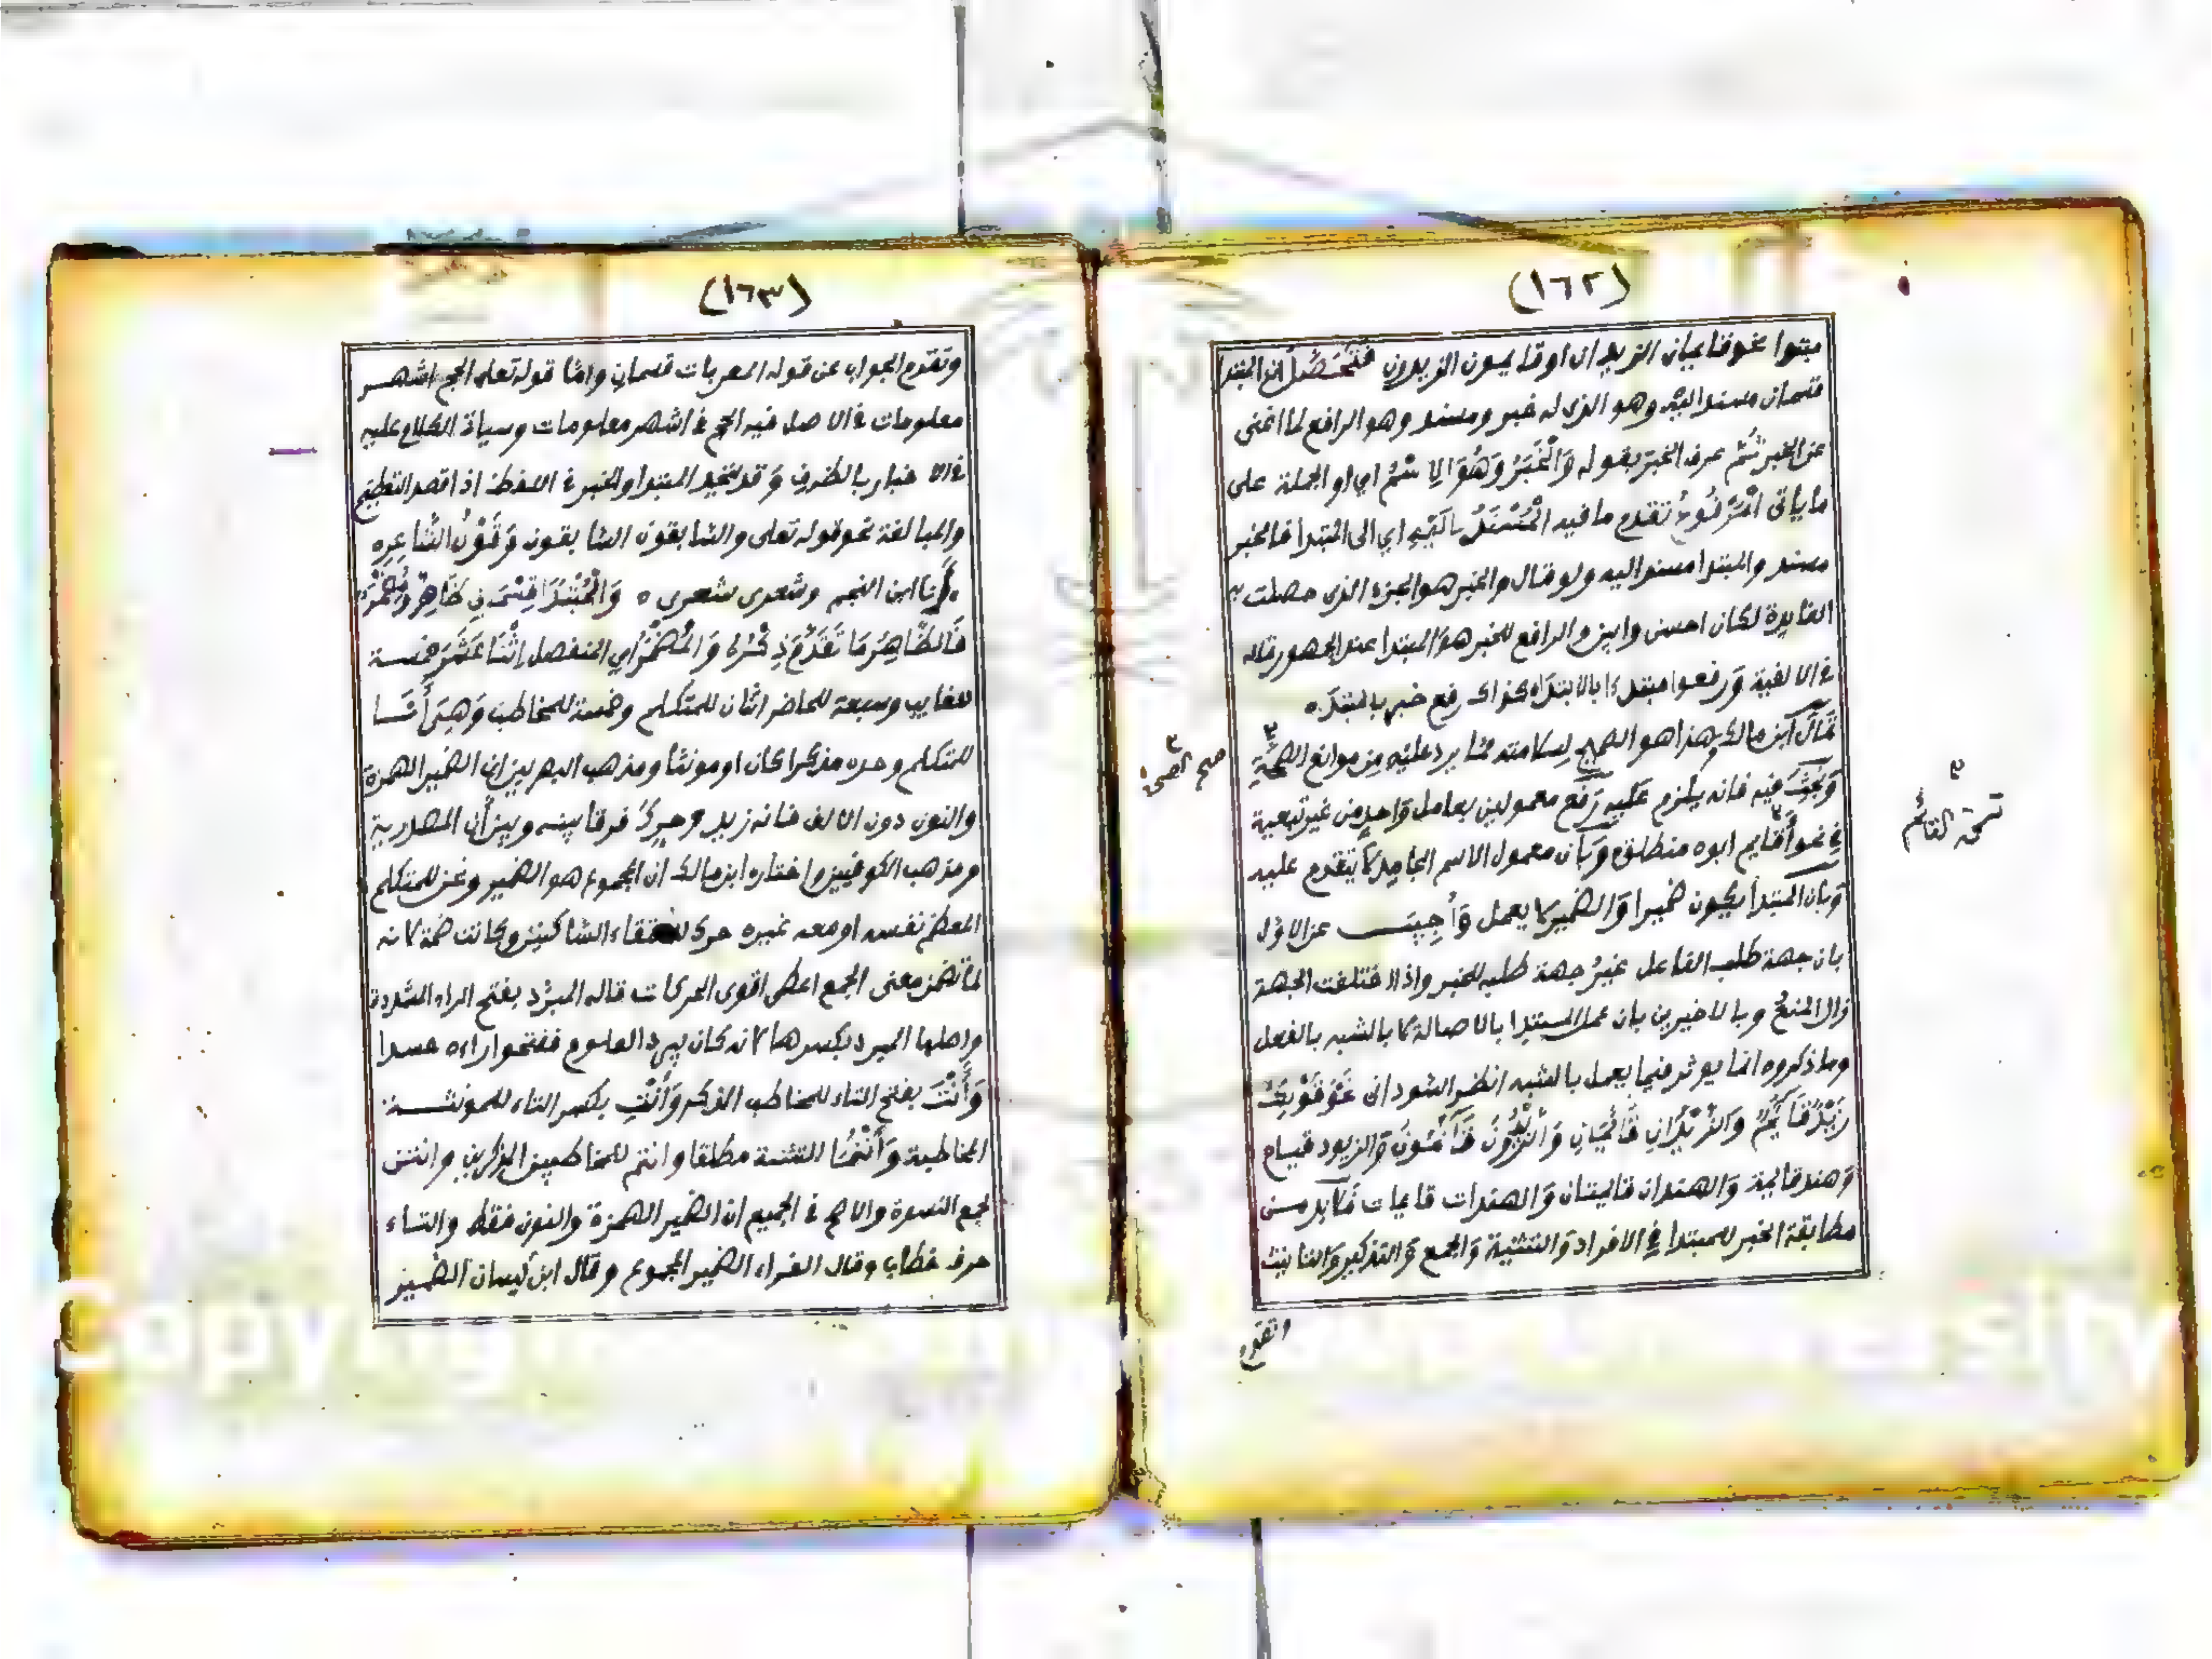 (١٦٢)
مبتدا نحو قايمان الزيدان او قايمون الزيدون فتحصل ان المبتدا
قسمان مسند اليه وهو الذي له خبر ومسند وهو الرافع لما اغنى
عن الخبر ثم عرف الخبر بقوله وَالْخَبَرُ وَهُوَ الاِسْمُ اي او الجملة على
ما ياتى الْمَرْفُوعُ تقدم ما فيه الْمُسْنَدُ اِلَيْهِ اي الى المبتدأ فالخبر
مسند والمبتدا مسند اليه ولو قال والخبر هو الجزء الذى حصلت به
الفايدة لكان احسن وابين والرافع للخبر هو المبتدا عند الجمهور قاله
فى الالفية وَرفعوا مبتدءا بالابتداء كذاك رفع خبر بالمبتداء
قال ابن مالك وهذا هو الصحيح لسلامته مما يرد عليه من موانع الصحة
وَبُحِثَ فيه فانه يلزم عليه رَفع معمولين بعامل وَاحد من غير تبعية
في نحو أقايم ابوه منطلق وَبأن معمول الاسم الجامد لا يتقدم عليه
وَبان المبتدأ يكون ضميرا وَالضمير لا يعمل وَأُجِيبَ عن الاول
بان جهة طلب الفاعل غيرُ جهة طلبه للخبر واذا اختلفت الجهة
زال المنعُ وبالاخيرين بان عمل المبتدا بالاصالة لا بالشبه بالفعل
وما ذكروه انما يوثر فيما يعمل بالشبه انظر السودانى نَحْوَ قَوْلِكَ
زَيْدٌ قَايِمٌ وَالزَّيْدَانِ قَائِمَانِ وَالزَّيْدُونَ قَائِمُونَ وَالزيود قيام
وَهند قايمة وَالهندان قايمتان وَالهندات قايمات فلابد من
مطابقة الخبر للمبتدا في الافراد وَالتثنية وَالجمع وَالتذكير وَالتانيث
وتقدم
(١٦٣)
وتقدم الجواب عن قوله المعربات قسمان واما قوله تعلى الحج اشهر
معلومات فالاصل فيه الحج فى اشهر معلومات وسياتى الكلام عليه
فى الاخبار بالظرف وَقد يتحد المبتدا والخبر فى اللفظ اذا قصد التعظيم
والمبالغة نحو قوله تعلى والسابقون السابقون وَقَوْلُ الشَّاعِرِ
انا ابو النجم وشعرى شعرى وَالْمُبْتَدَا قِسْمَانِ ظَاهِرٌ وَمُضْمَرٌ
فَالظَّاهِرُ مَا تَقَدَّمَ ذِكْرُهُ وَالْمُضْمَرُ اي المنفصل اِثْنَا عَشَرَ خمسة
للغايب وسبعة للحاضر اثنان للمتكلم وخمسة للمخاطب وَهِيَ أَنَا
للمتكلم وحده مذكرا كان او مونثا ومذهب البصريين ان الضمير الهمزة
والنون دون الالف
ومذهب الكوفيين واختاره ابن مالك ان المجموع هو الضمير ونحن للمتكلم
المعظم نفسه او معه غيره حرك لالتقاء الساكنين وكانت ضمة لانه
لما تضمن معنى الجمع اعطى اقوى الحركات قاله المبرد بفتح الراء المشددة
واصلها المبرد بكسرها لانه كان يبرد العلوم ففتحوا راءه حسدا
وَأَنْتَ بفتح التاء للمخاطب الذكر وَأَنْتِ بكسر التاء للمونثة
المخاطبة وَأَنْتُمَا للتثنية مطلقا وانتم للمخاطبين الذكرين وانتن
لجمع النسوة والاصح فى الجميع ان الضمير الهمزة والنون فقط والتاء
حرف خطاب وقال الفراء الضمير المجموع وقال ابن كيسان الضمير